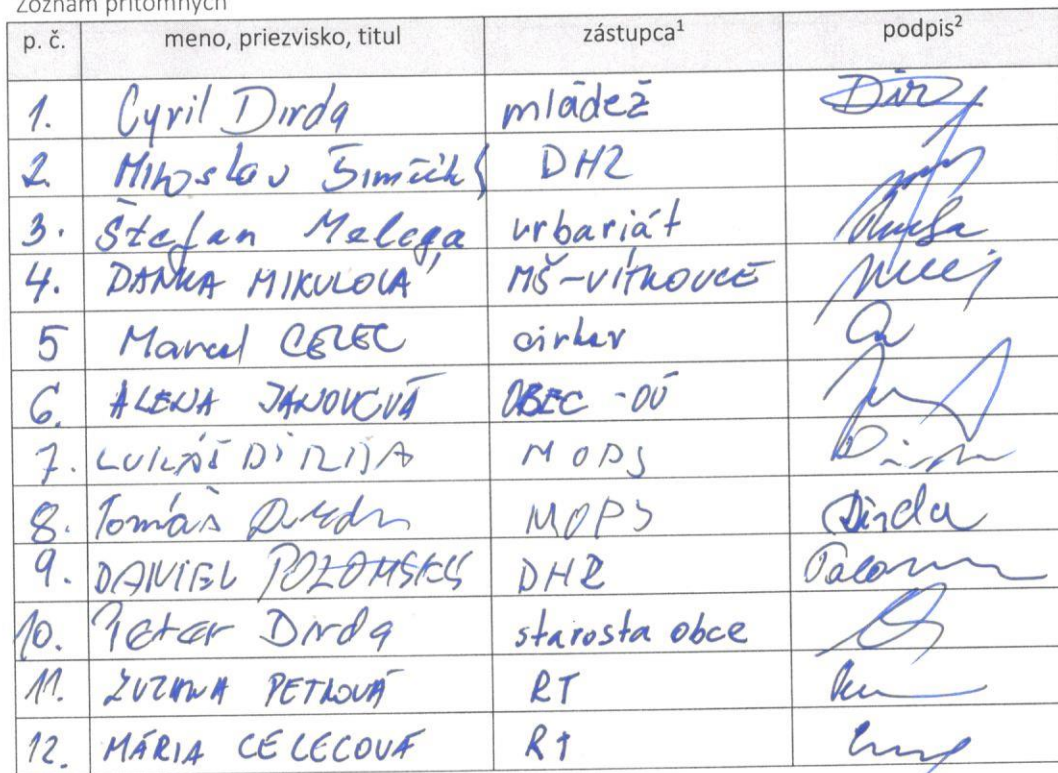 Zoznam prítomných
p. č. meno, priezvisko, titul zástupca¹ podpis²
1. Cyril Dirda mládež Dir
2. Miroslav DHZ
3. Štefan Melega urbariát
4. DANKA MIKULOVÁ MŠ-VÍTKOVCE
5 Marcel CELEC cirkev
6. ALENA JANOVČVÁ OBEC - OÚ
7. LUKÁŠ DIRDA MOPS
8. Tomáš MOPS Dirda
9. DANIEL POLOMSKÝ DHZ
10. Peter Dirda starosta obce
11. ZUZANA PETKOVÁ RT
12. MÁRIA CELECOVÁ RT